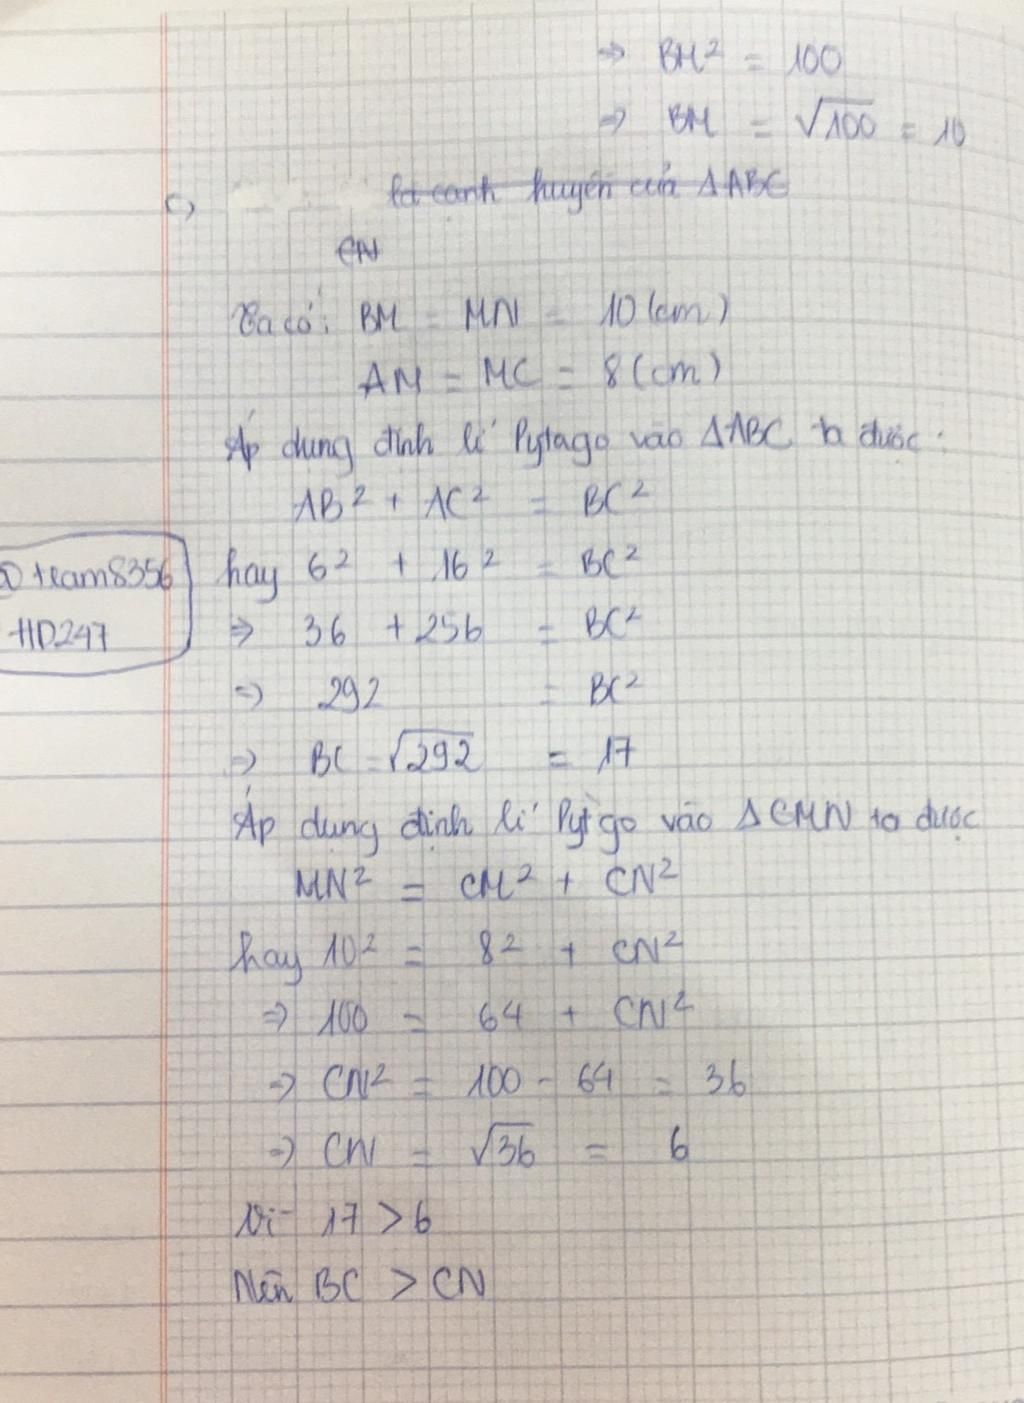 => BM² = 100
=> BM = √100 = 10
c) là cạnh huyền của ΔABC
CN
Ta có: BM = MN = 10 (cm)
AM = MC = 8 (cm)
Áp dụng định lí Pytago vào ΔABC ta được:
AB² + AC² = BC²
hay 6² + 16² = BC²
=> 36 + 256 = BC²
=> 292 = BC²
=> BC = √292 = 17
Áp dụng định lí Pytgo vào ΔCMN ta được
MN² = CM² + CN²
hay 10² = 8² + CN²
=> 100 = 64 + CN²
=> CN² = 100 - 64 = 36
=> CN = √36 = 6
Vì 17 > 6
Nên BC > CN
team8356
HD247